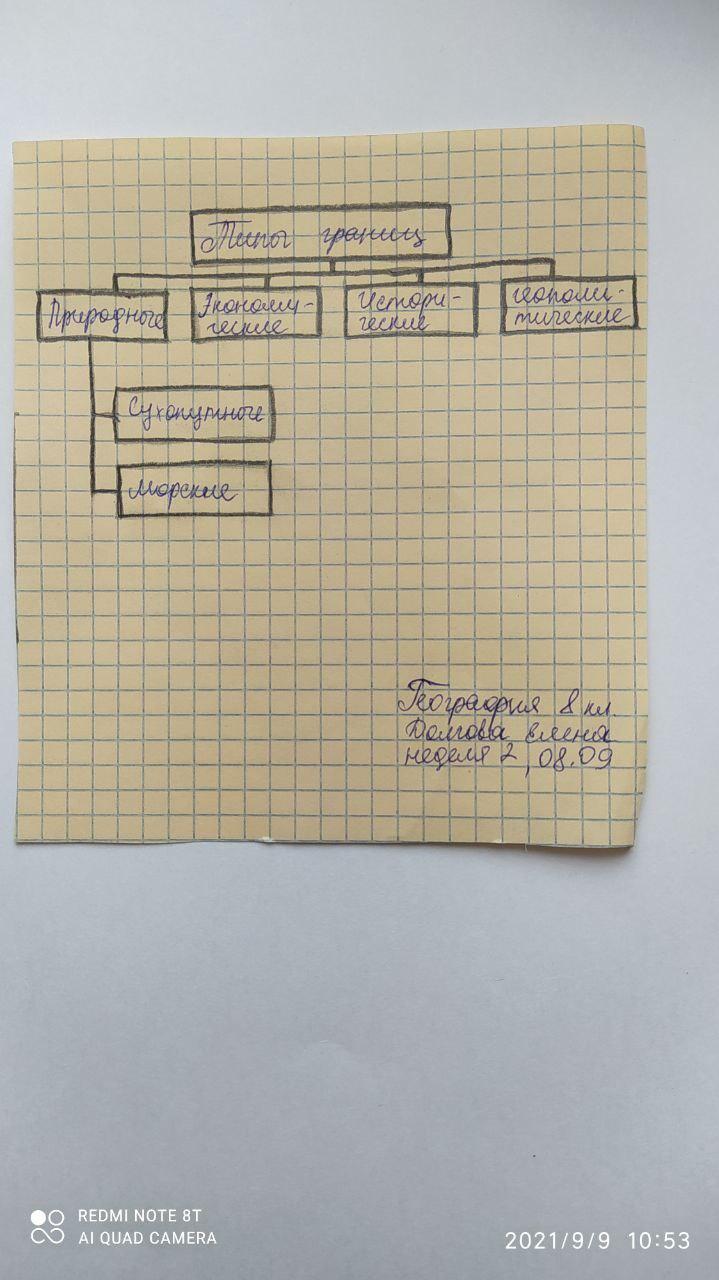 Типы границ
Природные
Экономи-
ческие
Истори-
ческие
геополи-
тические
Сухопутные
Морские
География 8 кл.
Долгова Елена
неделя 2, 08.09
REDMI NOTE 8T
AI QUAD CAMERA
2021/9/9 10:53